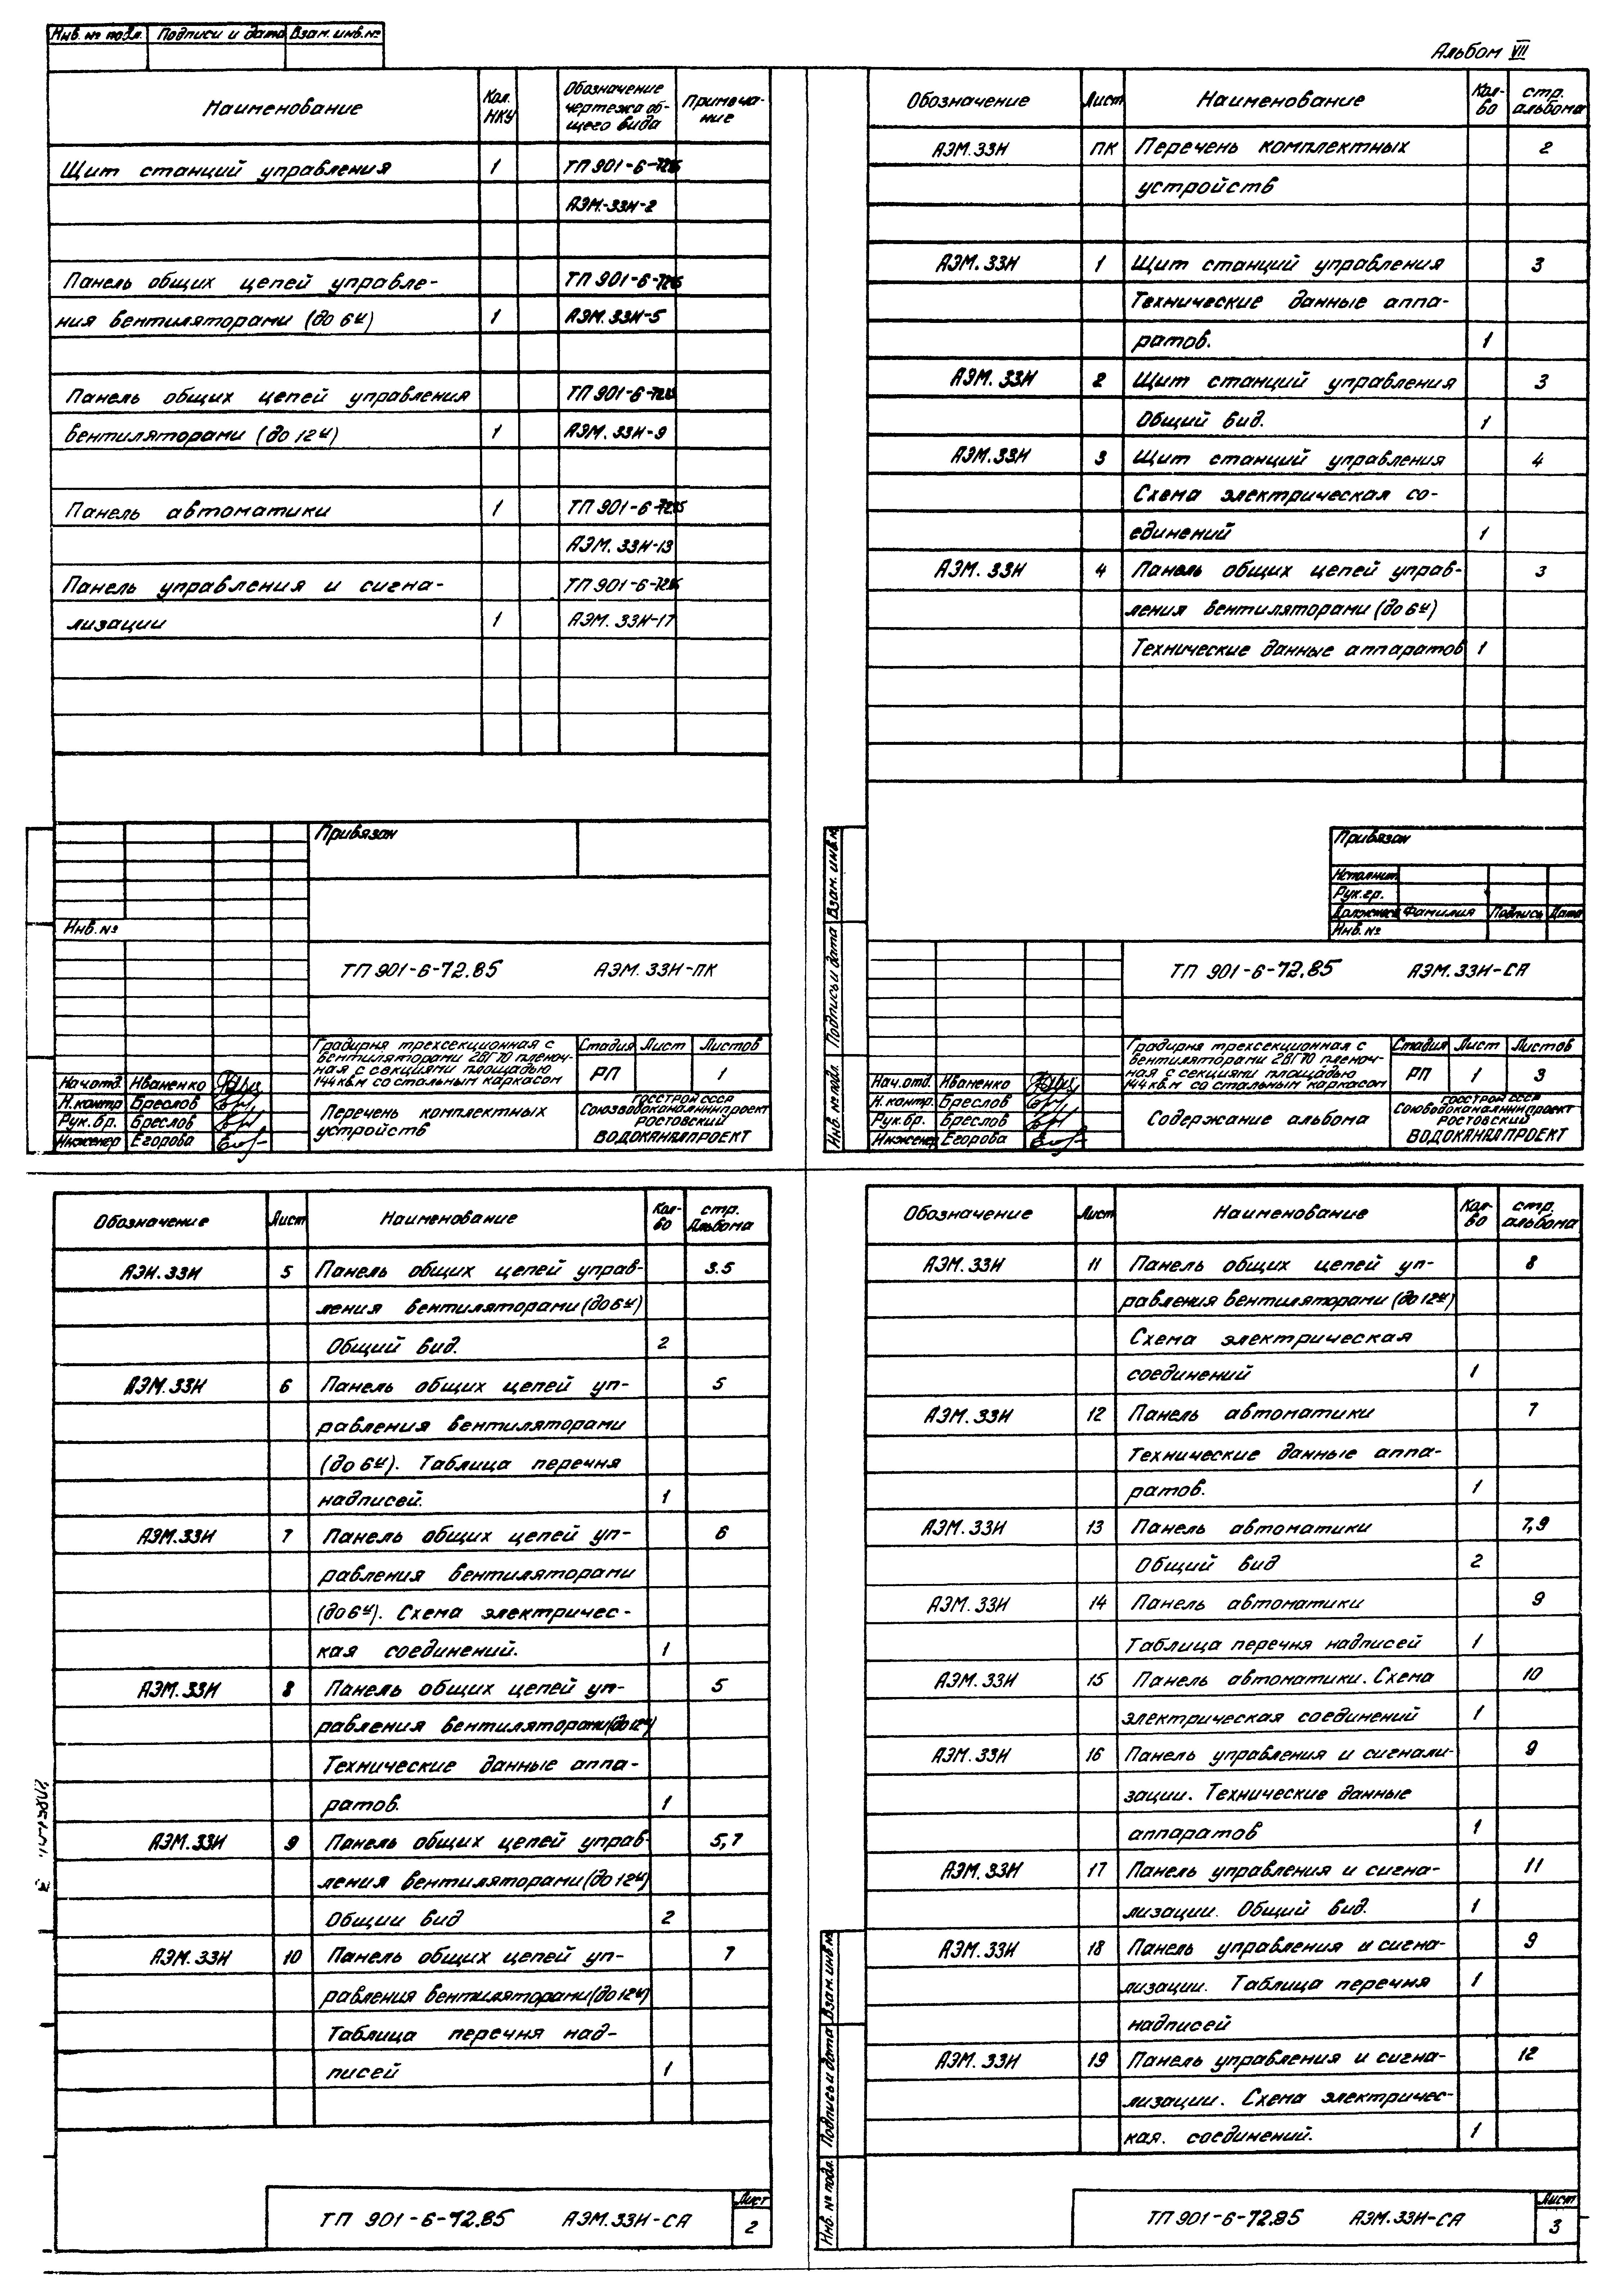 Инв. № подл. Подписи и дата Взам. инв. №
Альбом VII
Наименование Кол. НКУ Обозначение чертежа общего вида Примечание
Щит станций управления 1 ТП 901-6-72.85
АЭМ.ЗЗИ-2
Панель общих цепей управле- ТП 901-6-72.85
ния вентиляторами (до 6и) 1 АЭМ.ЗЗИ-5
Панель общих цепей управления ТП 901-6-72.85
вентиляторами (до 12и) 1 АЭМ.ЗЗИ-9
Панель автоматики 1 ТП 901-6-72.85
АЭМ.ЗЗИ-13
Панель управления и сигна- ТП 901-6-72.85
лизации 1 АЭМ.ЗЗИ-17
Привязан
Инв. №
ТП 901-6-72.85 АЭМ.ЗЗИ-ПК
Градирня трехсекционная с
вентиляторами 2ВГ70 пленоч-
ная с секциями площадью
144 кв.м со стальным каркасом
Стадия Лист Листов
РП 1
Нач.отд. Иваненко
Н.контр Бреслов
Рук.бр. Бреслов
Инженер Егорова
Перечень комплектных
устройств
Госстрой СССР
Союзводоканалниипроект
Ростовский
ВОДОКАНАЛПРОЕКТ
Обозначение Лист Наименование Кол-во стр. альбома
АЭМ.ЗЗИ ПК Перечень комплектных 2
устройств
АЭМ.ЗЗИ 1 Щит станций управления 3
Технические данные аппа-
ратов. 1
АЭМ.ЗЗИ 2 Щит станций управления 3
Общий вид. 1
АЭМ.ЗЗИ 3 Щит станций управления 4
Схема электрическая со-
единений 1
АЭМ.ЗЗИ 4 Панель общих цепей управ- 3
ления вентиляторами (до 6и)
Технические данные аппаратов 1
Привязан
Исполнит.
Рук.гр.
Должность Фамилия Подпись Дата
Инв. №
Инв. № подл. Подпись и дата Взам. инв. №
ТП 901-6-72.85 АЭМ.ЗЗИ-СА
Градирня трехсекционная с
вентиляторами 2ВГ70 пленоч-
ная с секциями площадью
144 кв.м со стальным каркасом
Стадия Лист Листов
РП 1 3
Нач.отд. Иваненко
Н.контр. Бреслов
Рук.бр. Бреслов
Инженер Егорова
Содержание альбома
Госстрой СССР
Союзводоканалниипроект
Ростовский
ВОДОКАНАЛПРОЕКТ
Обозначение Лист Наименование Кол-во стр. Альбома
АЭИ.ЗЗИ 5 Панель общих цепей управ- 3.5
ления вентиляторами (до 6и)
Общий вид. 2
АЭМ.ЗЗИ 6 Панель общих цепей уп- 5
равления вентиляторами
(до 6и). Таблица перечня
надписей. 1
АЭМ.ЗЗИ 7 Панель общих цепей уп- 6
равления вентиляторами
(до 6и). Схема электричес-
кая соединений. 1
АЭМ.ЗЗИ 8 Панель общих цепей уп- 5
равления вентиляторами (до 12и)
Технические данные аппа-
ратов. 1
АЭМ.ЗЗИ 9 Панель общих цепей управ- 5,7
ления вентиляторами (до 12и)
Общии вид 2
АЭМ.ЗЗИ 10 Панель общих цепей уп- 7
равления вентиляторами (до 12и)
Таблица перечня над-
писей 1
ТП 901-6-72.85 АЭМ.ЗЗИ-СА Лист 2
Обозначение Лист Наименование Кол-во стр. альбома
АЭМ.ЗЗИ 11 Панель общих цепей уп- 8
равления вентиляторами (до 12и)
Схема электрическая
соединений 1
АЭМ.ЗЗИ 12 Панель автоматики 7
Технические данные аппа-
ратов. 1
АЭМ.ЗЗИ 13 Панель автоматики 7,9
Общий вид 2
АЭМ.ЗЗИ 14 Панель автоматики 9
Таблица перечня надписей 1
АЭМ.ЗЗИ 15 Панель автоматики. Схема 10
электрическая соединений 1
АЭМ.ЗЗИ 16 Панель управления и сигнали- 9
зации. Технические данные
аппаратов 1
АЭМ.ЗЗИ 17 Панель управления и сигна- 11
лизации. Общий вид. 1
АЭМ.ЗЗИ 18 Панель управления и сигна- 9
лизации. Таблица перечня 1
надписей
АЭМ.ЗЗИ 19 Панель управления и сигна- 12
лизации. Схема электричес-
кая. соединений. 1
Инв. № подл. Подпись и дата Взам. инв. №
ТП 901-6-72.85 АЭМ.ЗЗИ-СА Лист 3